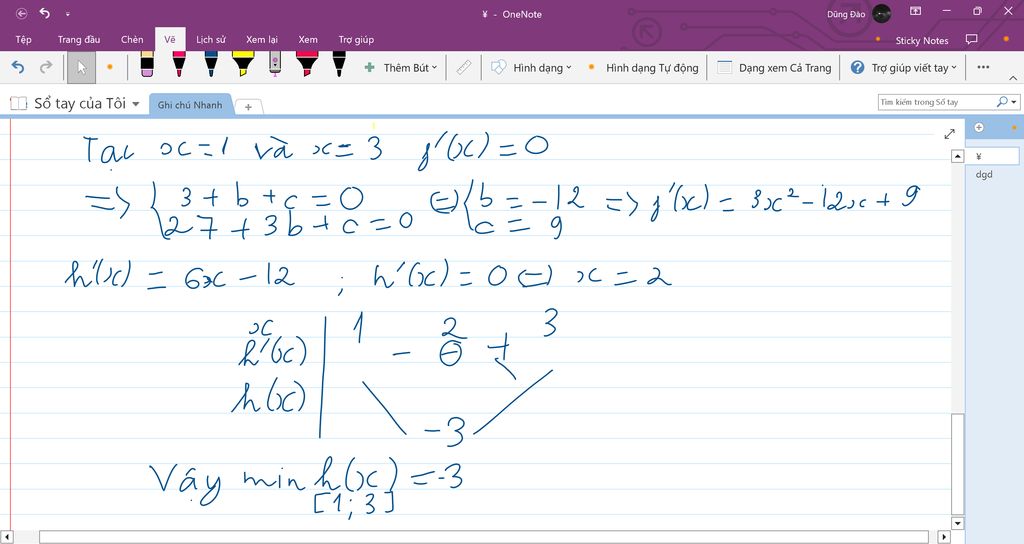 ¥ - OneNote
Dũng Đào
Tệp Trang đầu Chèn Vẽ Lịch sử Xem lại Xem Trợ giúp
Sticky Notes
Thêm Bút Hình dạng Hình dạng Tự động Dạng xem Cả Trang Trợ giúp viết tay
Sổ tay của Tôi Ghi chú Nhanh +
Tìm kiếm trong Sổ tay
¥
dgd
Tại x=1 và x=3 f'(x)=0
=> { 3+b+c=0 <=> { b=-12 => f'(x)=3x²-12x+9
27+3b+c=0 c=9
h'(x)=6x-12 ; h'(x)=0 <=> x=2
x 1 2 3
h'(x) - 0 +
h(x)
-3
Vậy min h(x)=-3
[1;3]